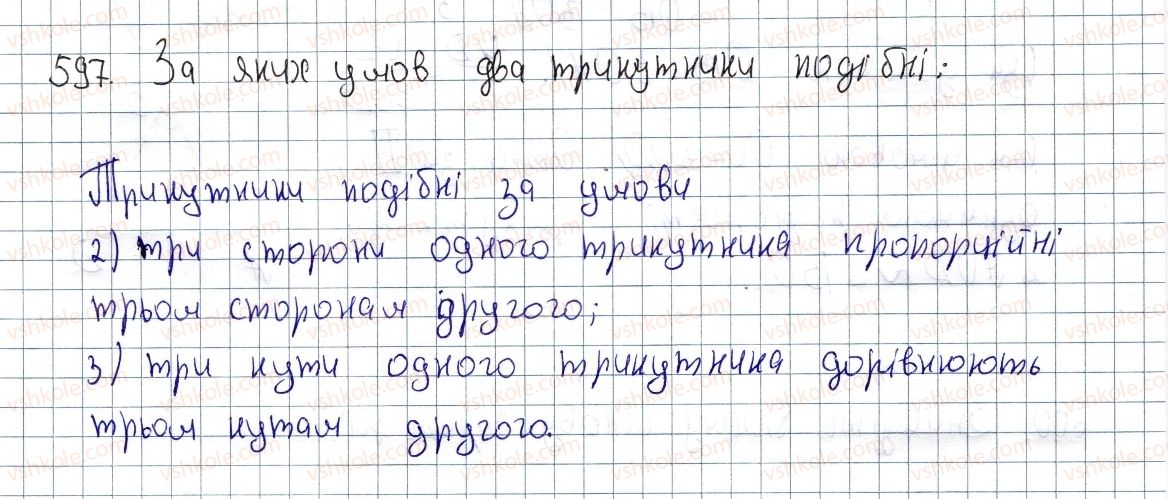 597. За яких умов два трикутники подібні:
Трикутники подібні за умови
2) три сторони одного трикутника пропорційні
трьом сторонам другого;
3) три кути одного трикутника дорівнюють
трьом кутам другого.